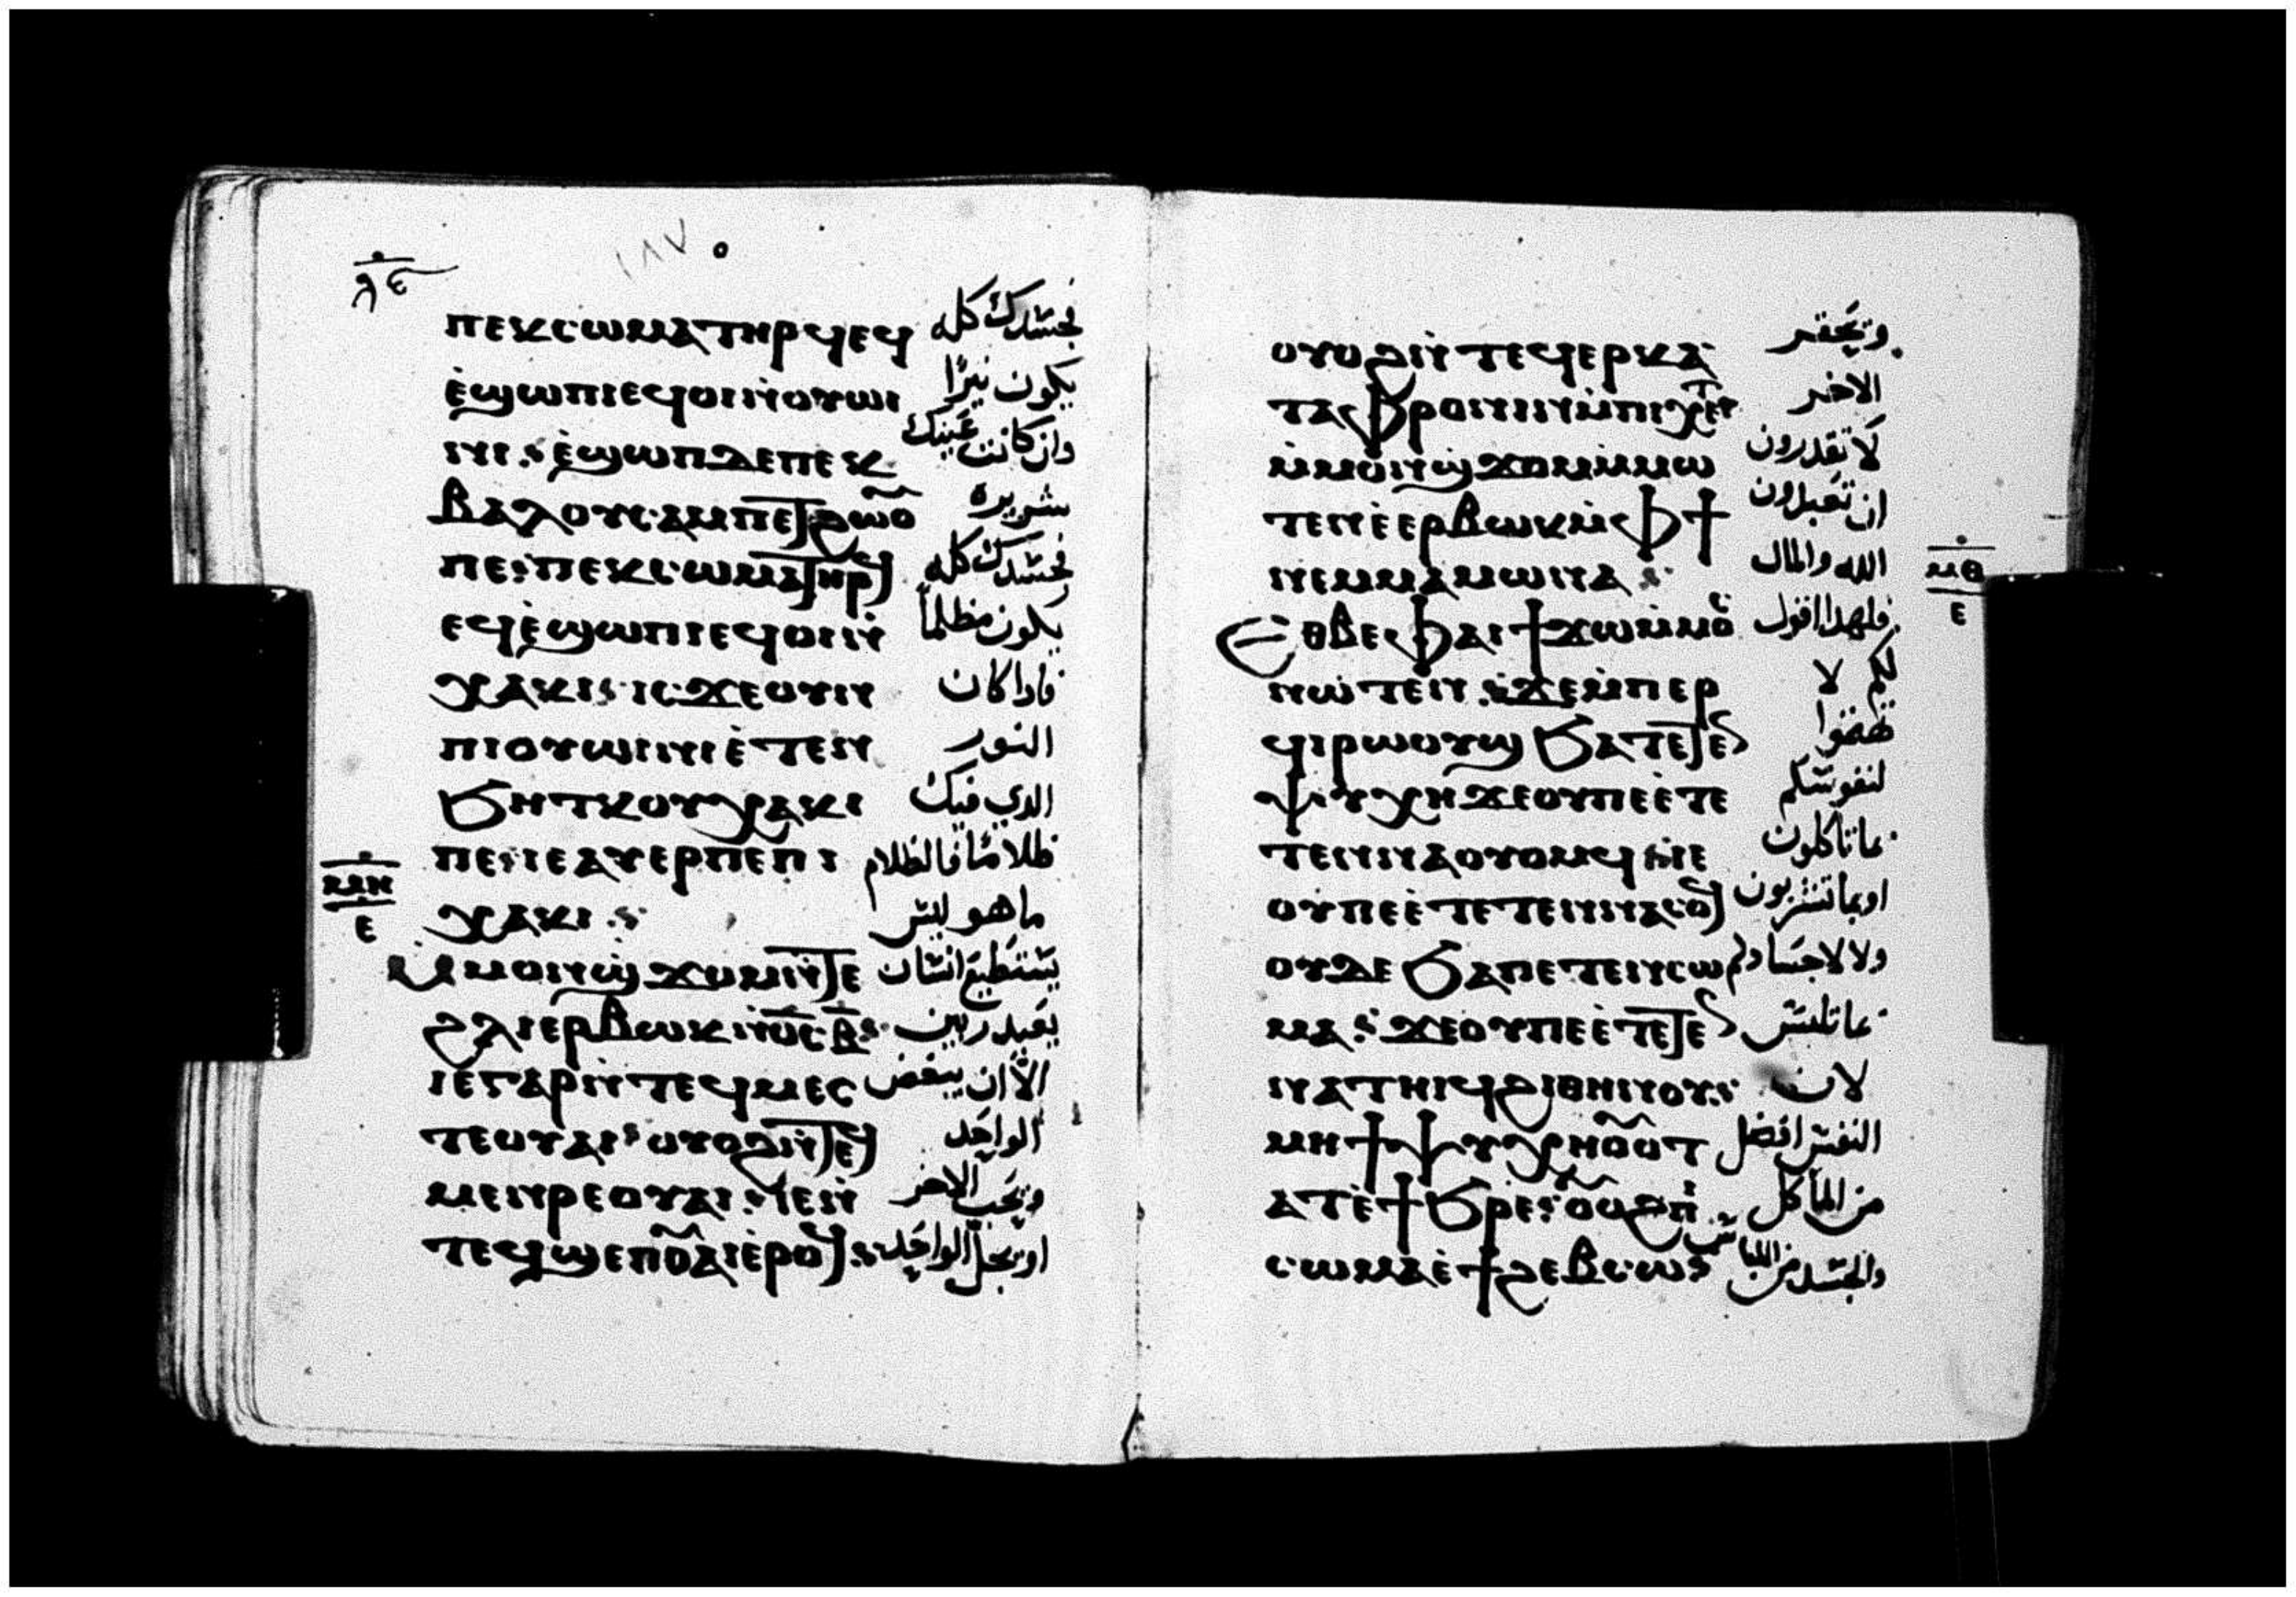 ⲡⲉⲕⲥⲱⲙⲁ ⲧⲏⲣϥ ⲉϥ فجسدك كله
ⲉ̀ϣⲱⲡⲓ ⲉϥⲟⲓ ⲛ̀ⲟⲩⲱⲓ يكون نيرًا
ⲛⲓ. ⲉ̀ϣⲱⲡ ⲇⲉ ⲡⲉⲕ وان كانت عينك
ⲃⲁⲗ ⲟⲩⲥⲁⲙⲡⲉⲧϩⲱⲟ شريره
ⲡⲉ: ⲡⲉⲕⲥⲱⲙⲁ ⲧⲏⲣϥ فجسدك كله
ⲉϥⲉ̀ϣⲱⲡⲓ ⲉϥⲟⲓ ⲛ̀ يكون مظلماً
ⲭⲁⲕⲓ: ⲓⲥϫⲉ ⲟⲩⲛ فادا كان
ⲡⲓⲟⲩⲱⲓⲛⲓ ⲉ̀ⲧⲉⲛ النور
ϧⲏⲧⲕ ⲟⲩⲭⲁⲕⲓ الدي فيك
ⲡⲉ: ⲓⲉ ⲁⲩⲉⲣ ⲡⲉ ⲡⲓ ظلاماً فالظلام
ⲭⲁⲕⲓ. ما هو ليس
ⲙ̀ⲙⲟⲛ ϣϫⲟⲙ ⲛ̀ⲧⲉ يستطيع انسان
ϩⲗⲓ ⲉⲣⲃⲱⲕ ⲛ̀ⲟ̅ⲥ̅ ⲃ̅ يعبد ربين
ⲓⲉ ⲅⲁⲣ ⲛ̀ⲧⲉϥⲙⲉⲥ الا ان يبغض
ⲧⲉ ⲟⲩⲁⲓ: ⲟⲩⲟϩ ⲛ̀ⲧⲉϥ الواحد
ⲙⲉⲛⲣⲉ ⲟⲩⲁⲓ. ⲓⲉ ⲛ̀ ويحب الاخر
ⲧⲉϥϣⲉⲡ ⲟⲩⲁⲓ ⲉ̀ⲣⲟϥ او يجل الواحد
ⲟⲩⲟϩ ⲛ̀ⲧⲉϥⲉⲣⲕⲁ ويحقر
ⲧⲁⲫⲣⲟⲛⲓⲛ ⲙ̀ⲡⲓⲭⲉⲧ الاخر
ⲙ̀ⲙⲟⲛ ϣϫⲟⲙ ⲙ̀ⲙⲱ لا تقدرون
ⲧⲉⲛ ⲉ̀ⲉⲣⲃⲱⲕ ⲙ̀ⲫϯ ان تعبدون
ⲛⲉⲙ ⲙⲁⲙⲱⲛⲁ الله والمال
Ⲉⲑⲃⲉ ⲫⲁⲓ ϯϫⲱ ⲙ̀ⲙⲟ فلهدا اقول
ⲛⲱⲧⲉⲛ. ϫⲉ ⲙ̀ⲡⲉⲣ لكم لا
ϥⲓⲣⲱⲟⲩϣ ϧⲁ ⲧⲉⲧⲉ تهتموا
ⲯⲩⲭⲏ ϫⲉ ⲟⲩ ⲡⲉ ⲉ̀ⲧⲉ لنفوسكم
ⲧⲉⲛⲛⲁⲟⲩⲟⲙϥ ⲓⲉ بما تاكلون
ⲟⲩ ⲡⲉ ⲉ̀ⲧⲉⲧⲉⲛⲛⲁⲥⲟϥ او بما تشربون
ⲟⲩⲇⲉ ϧⲁ ⲡⲉⲧⲉⲛⲥⲱ ولا لاجسادكم
ⲙⲁ. ϫⲉ ⲟⲩ ⲡⲉ ⲉ̀ⲧⲉⲧⲉ بما تلبس
ⲛⲁⲧⲏⲓϥ ϩⲓⲑⲏⲛⲟⲩ. لان
ⲙⲏ ϯⲯⲩⲭⲏ ⲟⲩⲟⲧ النفس افضل
ⲁⲧⲉ̀ ϯϧⲣⲉ: ⲟⲩⲟϩ ⲡⲓ من المأكل
ⲥⲱⲙⲁ ⲉ̀ϯϩⲉⲃⲥⲱ والجسد من اللباس
ⲙⲏ
ⲉ
ⲙⲑ
ⲉ
١٨٧